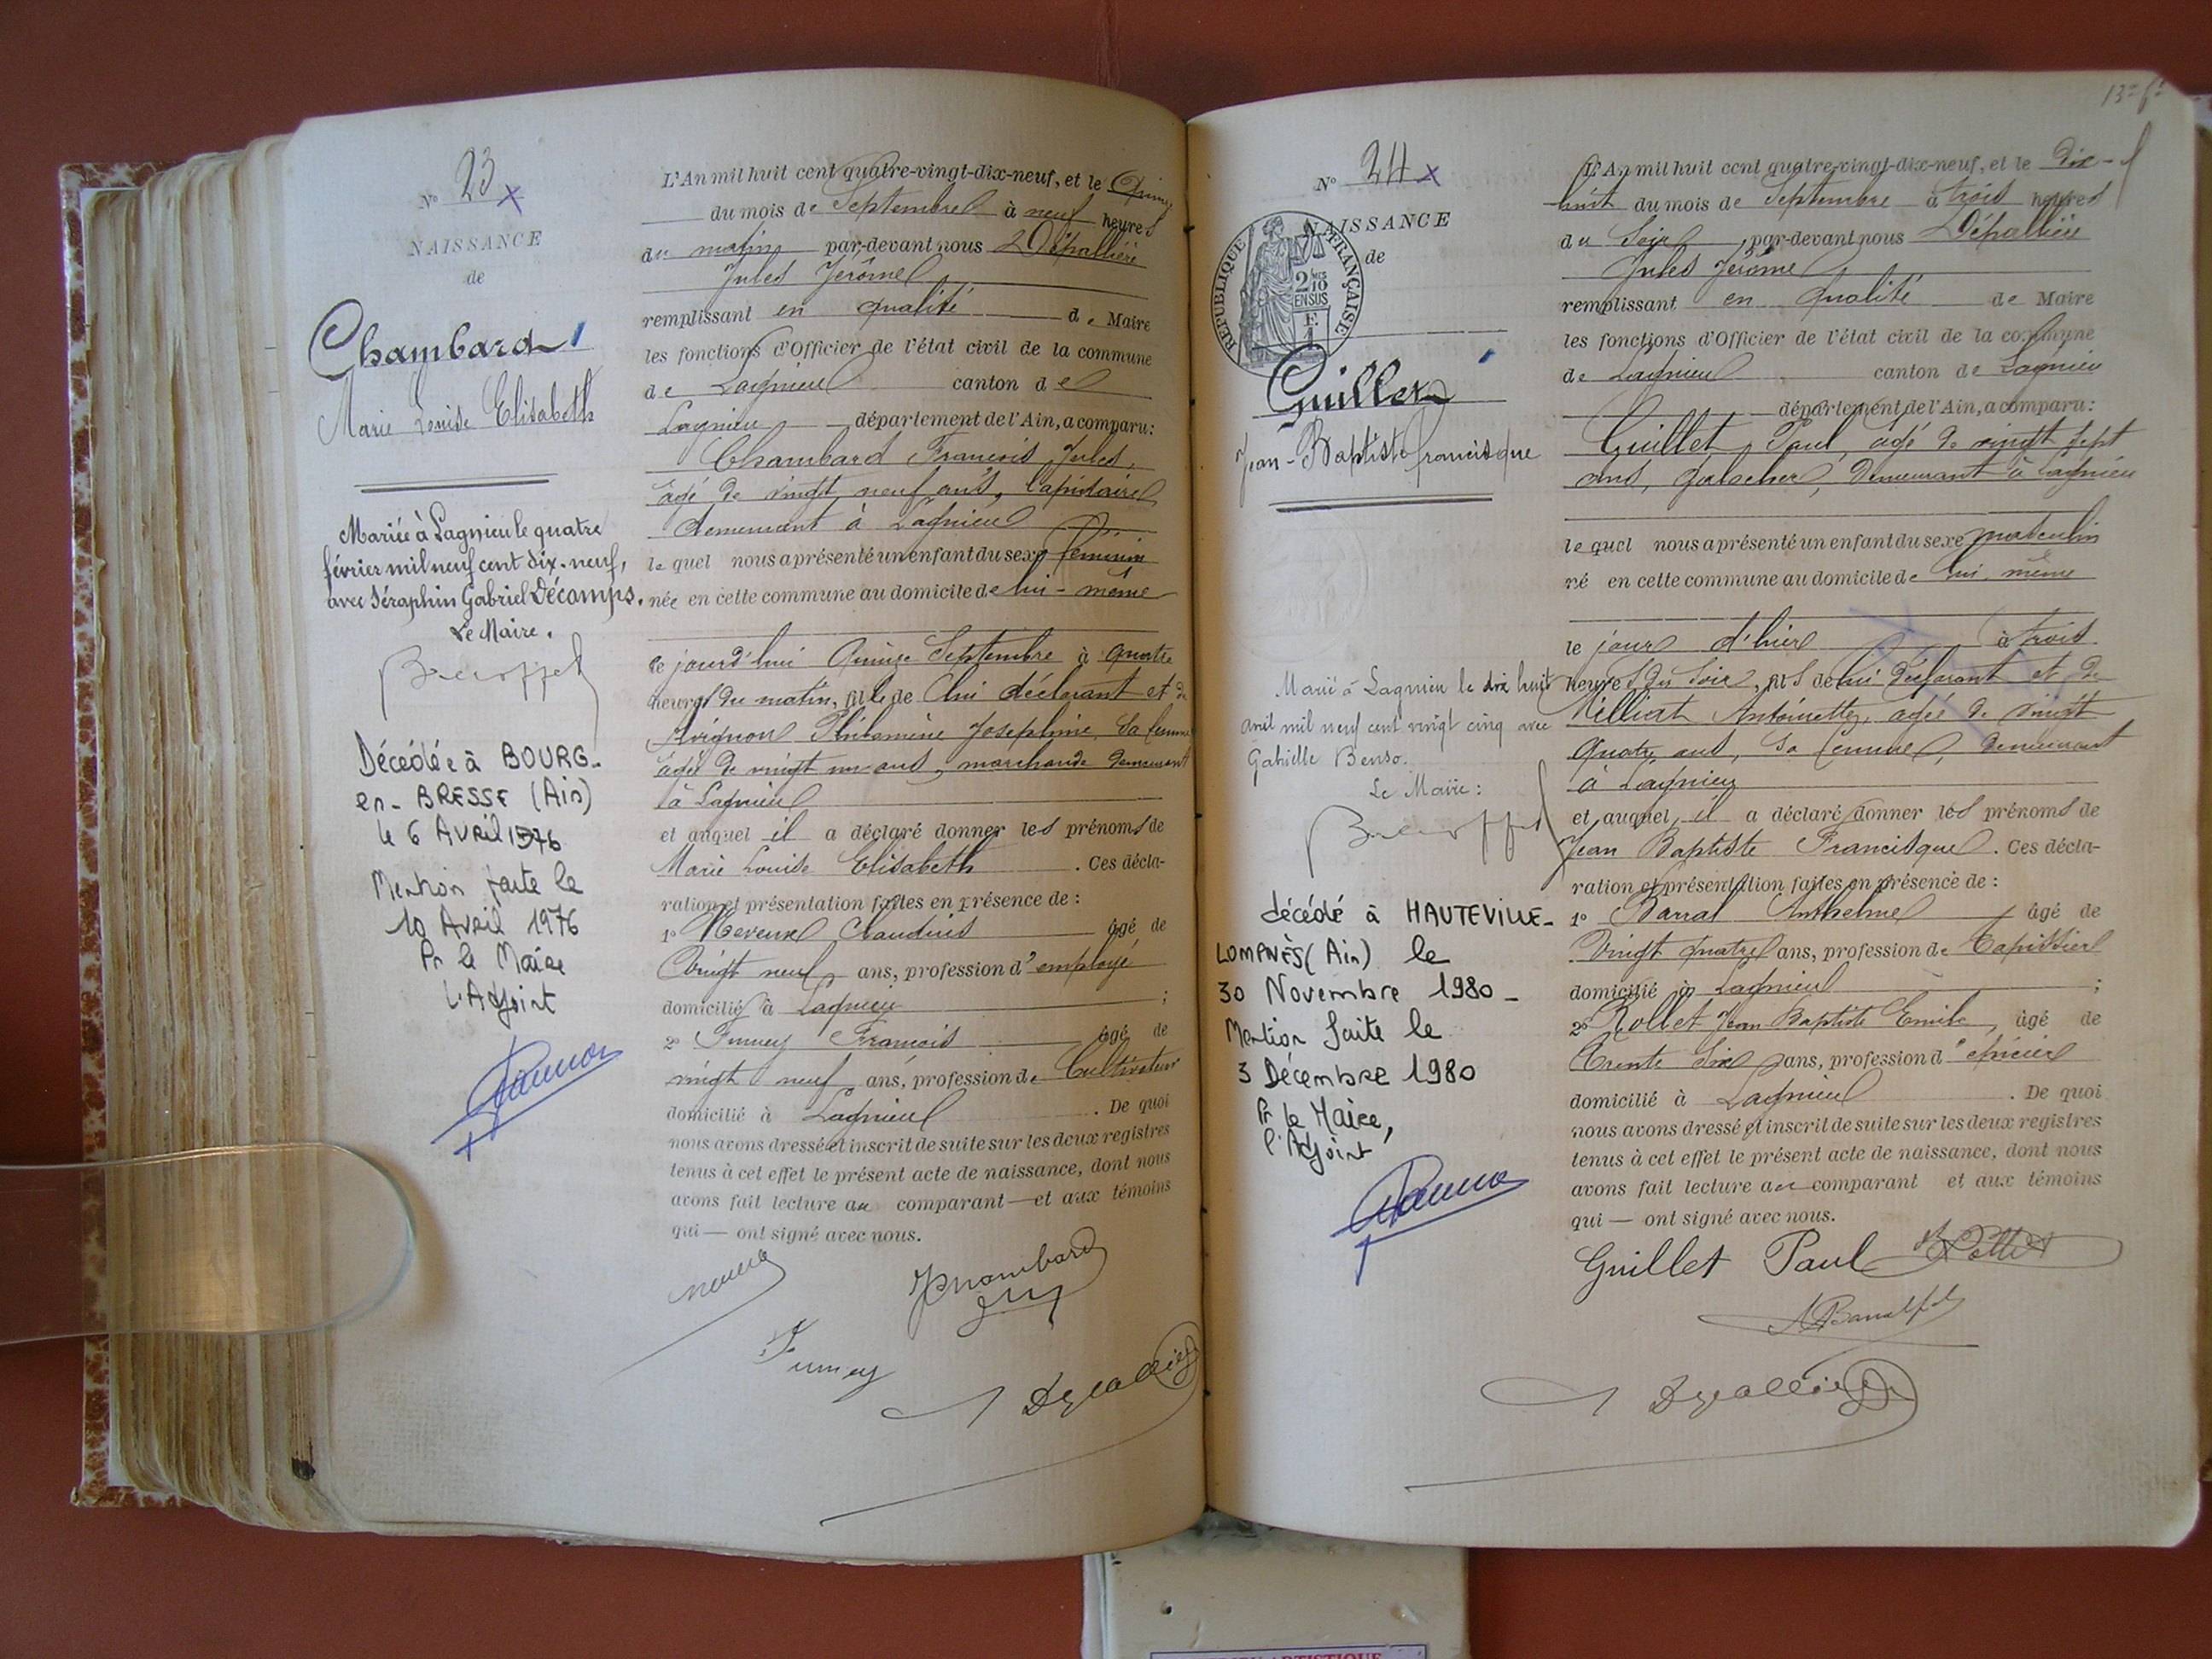 N° 23 x
NAISSANCE
de
Chambard
Marie Louise Elisabeth
Mariée à Lagnieu le quatre
février mil neuf cent dix-neuf,
avec Séraphin Gabriel Décamps.
Le Maire.
Décédée à BOURG-
en-BRESSE (Ain)
le 6 Avril 1976
Mention faite le
10 Avril 1976
Pr le Maire
l'Adjoint
L'An mil huit cent quatre-vingt-dix-neuf, et le Quinze
du mois de Septembre à neuf heures
du matin par-devant nous Dépallière
Jules Jérôme
remplissant en qualité de Maire
les fonctions d'Officier de l'état civil de la commune
de Lagnieu canton de
Lagnieu département de l'Ain, a comparu:
Chambard François Jules,
âgé de vingt neuf ans, lapidaire
demeurant à Lagnieu
le quel nous a présenté un enfant du sexe féminin
née en cette commune au domicile de lui-même
le jourd'hui Quinze Septembre à quatre
heures du matin, fille de lui déclarant et de
Philomène Joséphine, sa femme
âgée de vingt un ans, marchande demeurant
à Lagnieu
et auquel il a déclaré donner les prénoms de
Marie Louise Elisabeth . Ces décla-
ration et présentation faites en présence de :
1° Claudius âgé de
Vingt neuf ans, profession d'employé
domicilié à Lagnieu ;
2° Fumey François âgé de
vingt neuf ans, profession de Cultivateur
domicilié à Lagnieu . De quoi
nous avons dressé et inscrit de suite sur les deux registres
tenus à cet effet le présent acte de naissance, dont nous
avons fait lecture au comparant — et aux témoins
qui — ont signé avec nous.
Chambard
Fumey
13e ft
N° 24 x
NAISSANCE
de
REPUBLIQUE FRANÇAISE
2/10 EN SUS
Guillet
Jean-Baptiste francisque
Marié à Lagnieu le dix huit
avril mil neuf cent vingt cinq avec
Gabrielle Benso.
Le Maire :
décédé à HAUTEVILLE-
LOMPNÈS (Ain) le
30 Novembre 1980 -
Mention faite le
3 Décembre 1980
Pr le Maire,
l'Adjoint
L'An mil huit cent quatre-vingt-dix-neuf, et le Dix-
huit du mois de Septembre à trois heures
du Soir, par-devant nous Dépallière
Jules Jérôme
remplissant en qualité de Maire
les fonctions d'Officier de l'état civil de la commune
de Lagnieu canton de Lagnieu
département de l'Ain, a comparu:
Guillet Paul, âgé de vingt sept
ans, demeurant à Lagnieu
le quel nous a présenté un enfant du sexe masculin
né en cette commune au domicile de lui-même
le jour d'hier à trois
heures du Soir, fils de lui déclarant et de
Milliat Antoinette, âgée de vingt
quatre ans, sa femme, demeurant
à Lagnieu
et auquel il a déclaré donner les prénoms de
Jean Baptiste Francisque. Ces décla-
ration et présentation faites en présence de :
1° Barral Anthelme âgé de
Vingt quatre ans, profession de Tapissier
domicilié à Lagnieu ;
2° Rollet Jean Baptiste Emile, âgé de
Trente Six ans, profession d'épicier
domicilié à Lagnieu . De quoi
nous avons dressé et inscrit de suite sur les deux registres
tenus à cet effet le présent acte de naissance, dont nous
avons fait lecture au comparant et aux témoins
qui — ont signé avec nous.
Guillet Paul